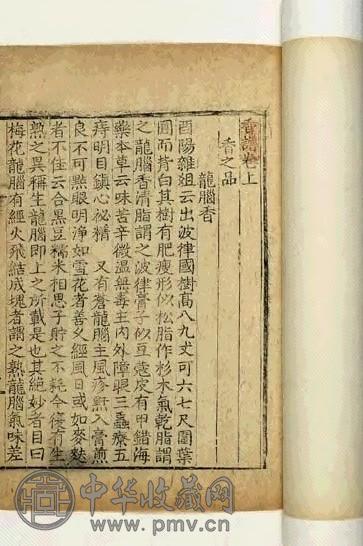 香譜卷上
香之品
龍腦香
酉陽雜俎云出波律國樹高八九丈可六七尺圍葉
圓而背白其樹有肥瘦形似松脂作杉木氣乾脂謂
之龍腦香清脂謂之波律膏子似豆蔻皮有甲錯海
藥本草云味苦辛微溫無毒主內外障眼三蟲療五
痔明目鎮心祕精 又有蒼龍腦主風疹䵟入膏煎
良不可點眼明淨如雪花者善久經風日或如麥麩
者不佳云合黑豆糯米相思子貯之不耗今復有生
熟之異稱生龍腦即上之所載是也其絕妙者目曰
梅花龍腦有經火飛結成塊者謂之熟龍腦氣味差
中华收藏网
www.pmv.cn